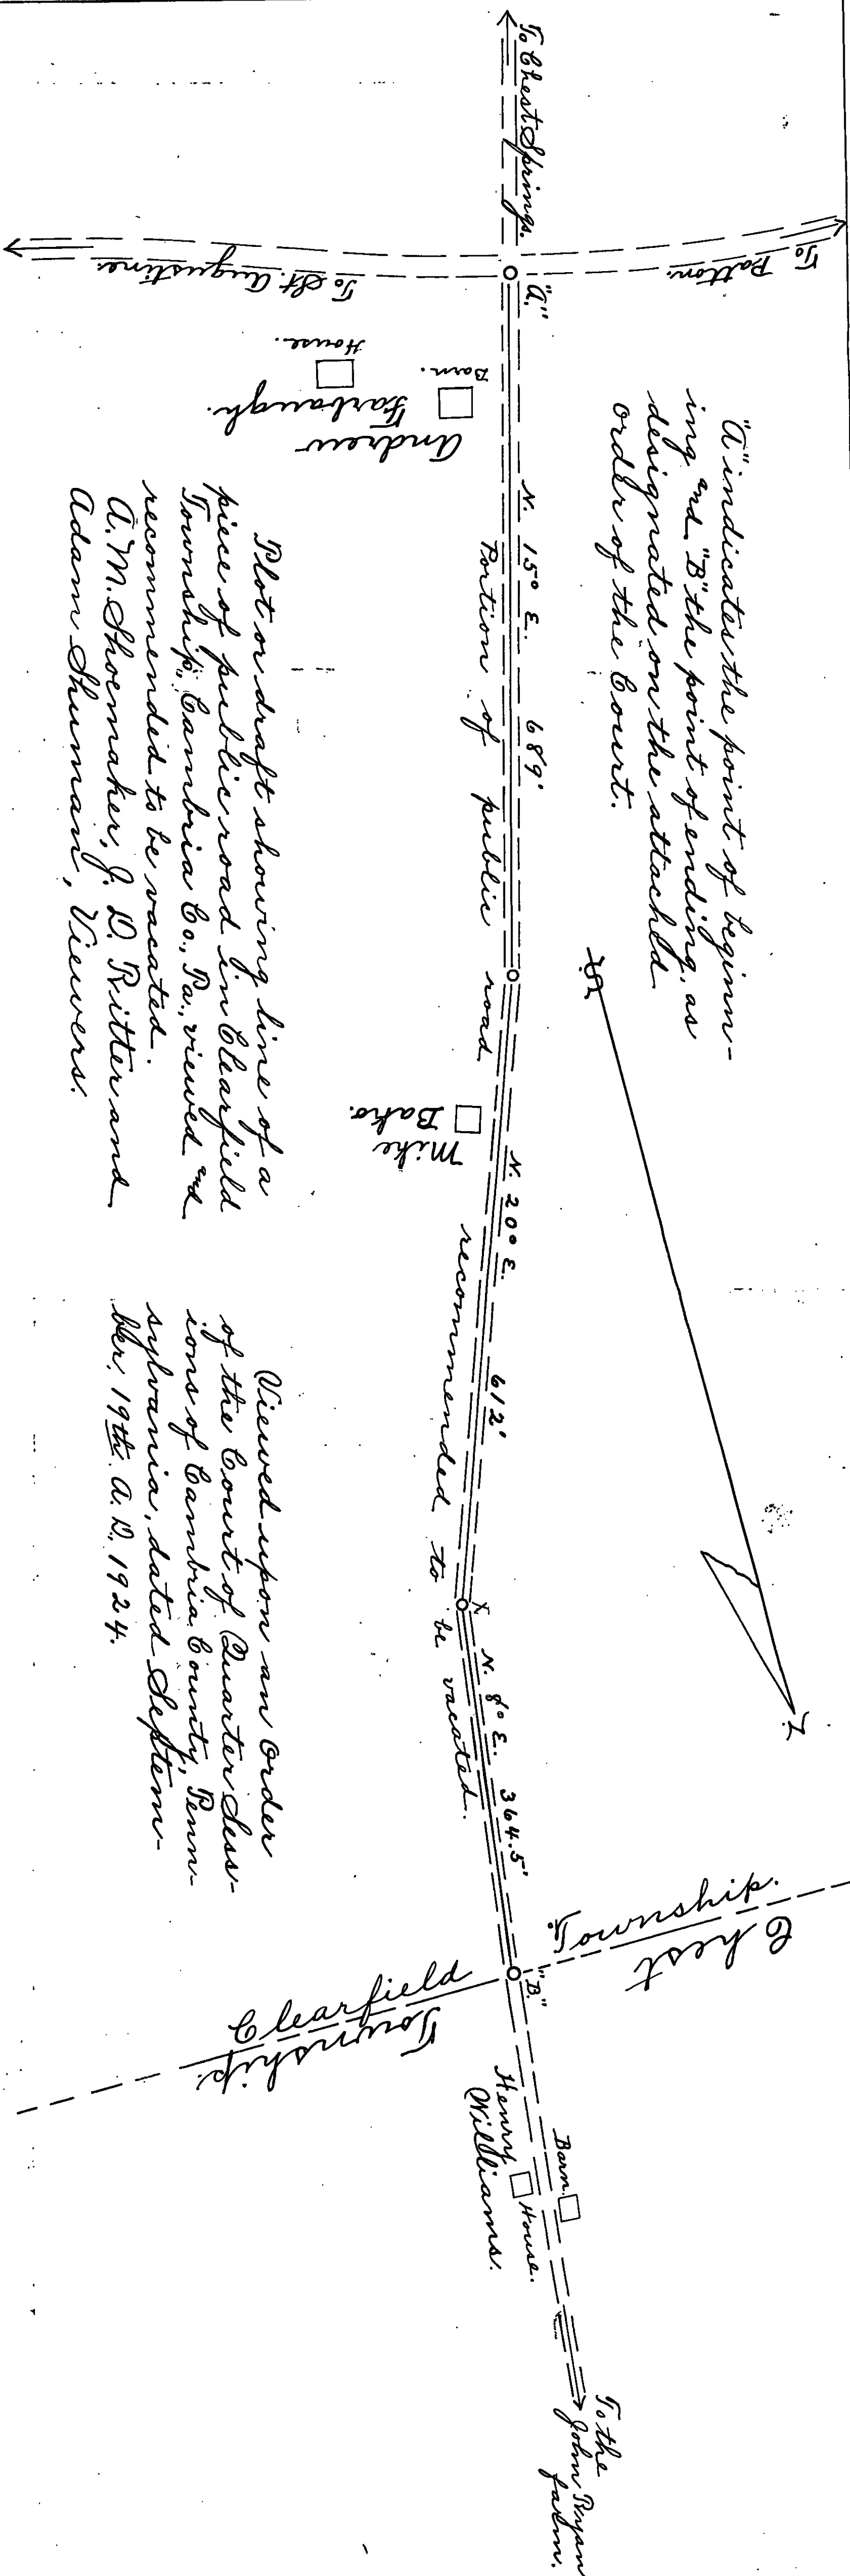 To Chest Springs.
To Patton.
To St. Augustine.
"A."
"A" indicates the point of beginn-
ing and "B" the point of ending, as
designated on the attached
order of the Court.
Barn.
House.
Andrew
Farbaugh.
N. 15° E. 689'
Portion of public road
N. 20° E. 612'
recommended to be vacated.
Mike
Bako.
S.
N.
X
N. 8° E. 364.5'
Plot or draft showing line of a
piece of public road in Clearfield
Township, Cambria Co., Pa., viewed and
recommended to be vacated.
A. M. Shoemaker, J. D. Ritter and
Adam Shuman, Viewers.
Viewed upon an order
of the Court of Quarter Sess-
ions of Cambria County, Penn-
sylvania, dated Septem-
ber, 19th. A. D. 1924.
Chest
Township.
"B."
Clearfield
Township.
Barn.
House.
Henry
Williams.
To the
John Ryan
farm.